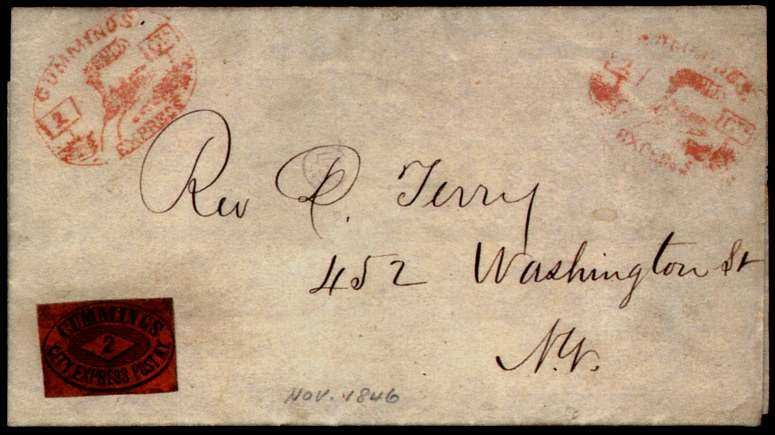 CUMMINGS
2
EXPRESS
EXPRESS
Rev D. Terry
452 Washington St
N.Y.
CUMMINGS
2
CITY EXPRESS POST N.Y.
NOV. 1846